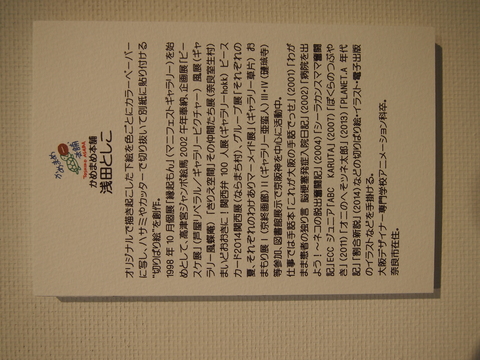 かめまめ
本舗
TOSHIKO ASADA
かめまめ本舗
浅田としこ
オリジナルで描き起こした下絵を色ごとにカラーペーパー
に写し、ハサミやカッターで切り抜いて別紙に貼り付ける
“切りばり絵”を創作。
1998年10月個展「縁起もん」(マニフェストギャラリー)を始
めとして、高津宮ジャンボ絵馬2002午年奉納、企画展「ピー
スケ展」(芦屋リベラル/ギャラリービクチャー) 風展(ギャ
ラリー風蝶庵)「きりえ空間」その仲間たち展(奈良室生村)
まいどおおきに!関西弁100人展(ギャラリーhokk)ピース
カード2014関西展(ならまち村)、グループ展「それぞれの
夏、それぞれのわけありマーメイド展」(ギャラリー草片) お
まもり展Ⅰ(京終画廊)Ⅱ(ギャラリー亜蛮人)Ⅲ・Ⅳ(璉珹寺)
等参加、図書館展示で京阪神を中心に活動中。
仕事では手話本「これが大阪の手話でっせ」(2001)「わが
まま患者の独り言 脳梗塞発症入院日記」(2002)「病院を出
よう!～ネコの脱出奮闘記」(2004)「シーラカンスママ奮闘
記」ECC ジュニア「ABC KARUTA」(2007)「ぼくらのつぶや
き」(2011)「オニのへそツネ太郎」(2013)「PLANET.A 年代
記」「割合新説」(2014)などの切りばり絵・イラスト・電子出版
のイラストなどを手掛ける。
大阪デザイナー専門学校アニメーション科卒。
奈良市在住。